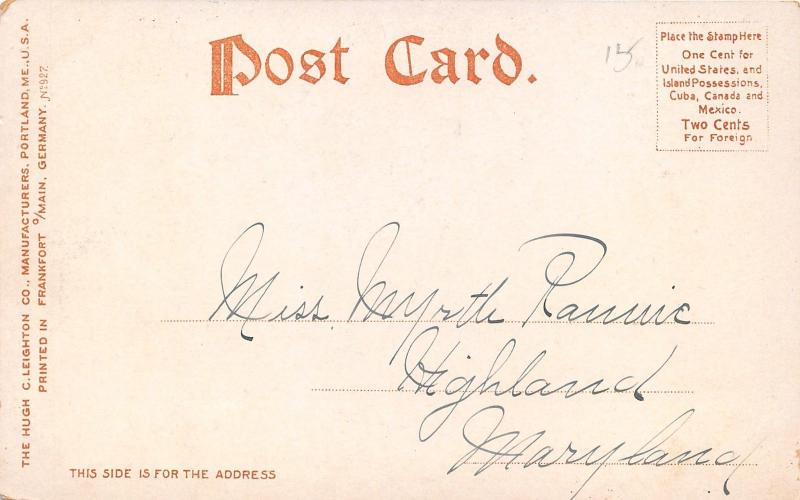 Post Card.
15
Place the Stamp Here
One Cent for
United States, and
Island Possessions,
Cuba, Canada and
Mexico.
Two Cents
For Foreign
THE HUGH C. LEIGHTON CO., MANUFACTURERS, PORTLAND, ME., U.S.A.
PRINTED IN FRANKFORT o/MAIN, GERMANY. No 927.
Miss Myrtle
Highland
Maryland
THIS SIDE IS FOR THE ADDRESS